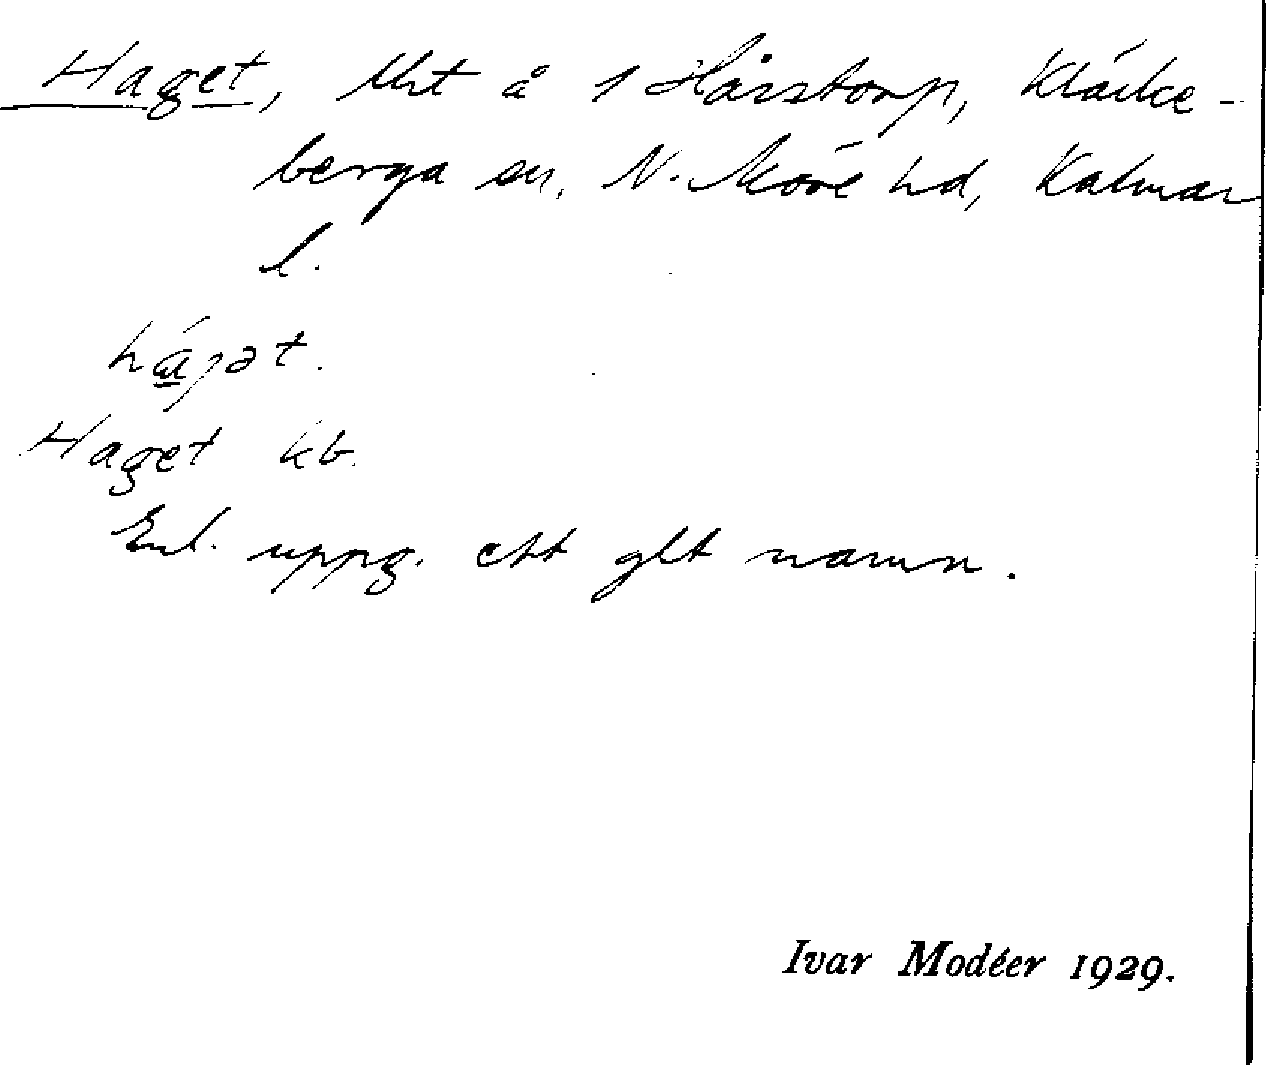 Haget, lht å 1 Hårstorp, Kläcke-
berga sn, N. Möre hd, Kalmar
l.
Haget kb.
Enl. uppg. ett glt namn.
Ivar Modéer 1929.